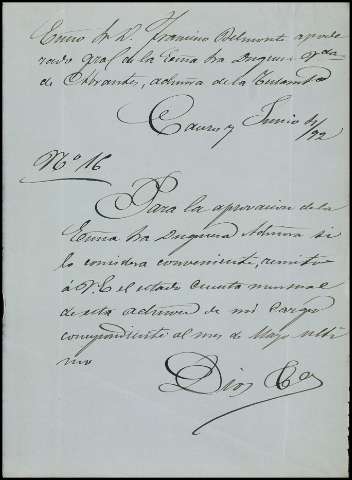 Exmo Sr D. Francisco Belmonte apode
rado gral de la Exma Sra Duquesa Vda
de Abrantes, admora de la
Junio 4/92
Nº 16
Para la aprovacion de la
Exma Sra Duquesa Admora si
lo considera conveniente, remito
á V. E. el estado cuenta mensual
de esta admon de mi cargo
correspondiente al mes de Mayo ulti
mo
Dios &a